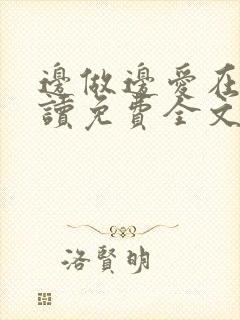 邊做邊愛在
讀免費全文
洛賢明